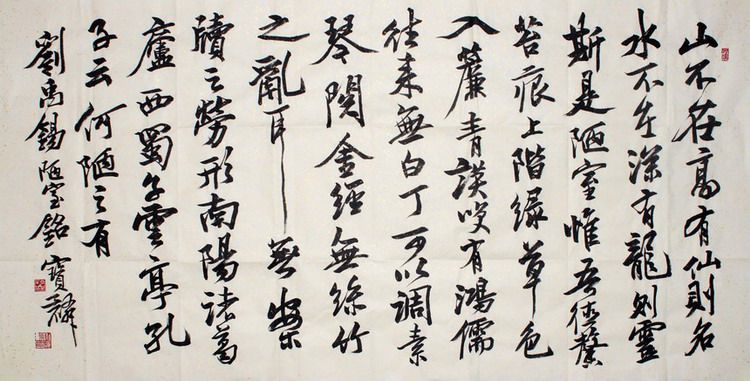 山不在高有仙則名
水不在深有龍則靈
斯是陋室惟吾德馨
苔痕上階綠草色
入簾青談咲有鴻儒
往來無白丁可以調素
琴閱金經無絲竹
之亂耳無案
牘之勞形南陽諸葛
廬西蜀子雲亭孔
子云何陋之有
劉禹錫陋室銘 寶